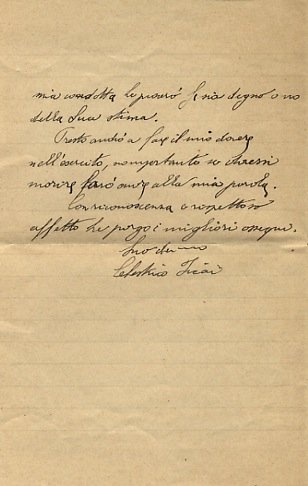 mia condotta le proverò se sia degno o no
della Sua stima.
Presto andrò a far il mio dovere
nell'esercito, non importa se dovessi
morire farò onore alla mia parola.
Con riconoscenza e rispettoso
affetto Le porgo i migliori ossequi.
Suo dev.mo
Celestino